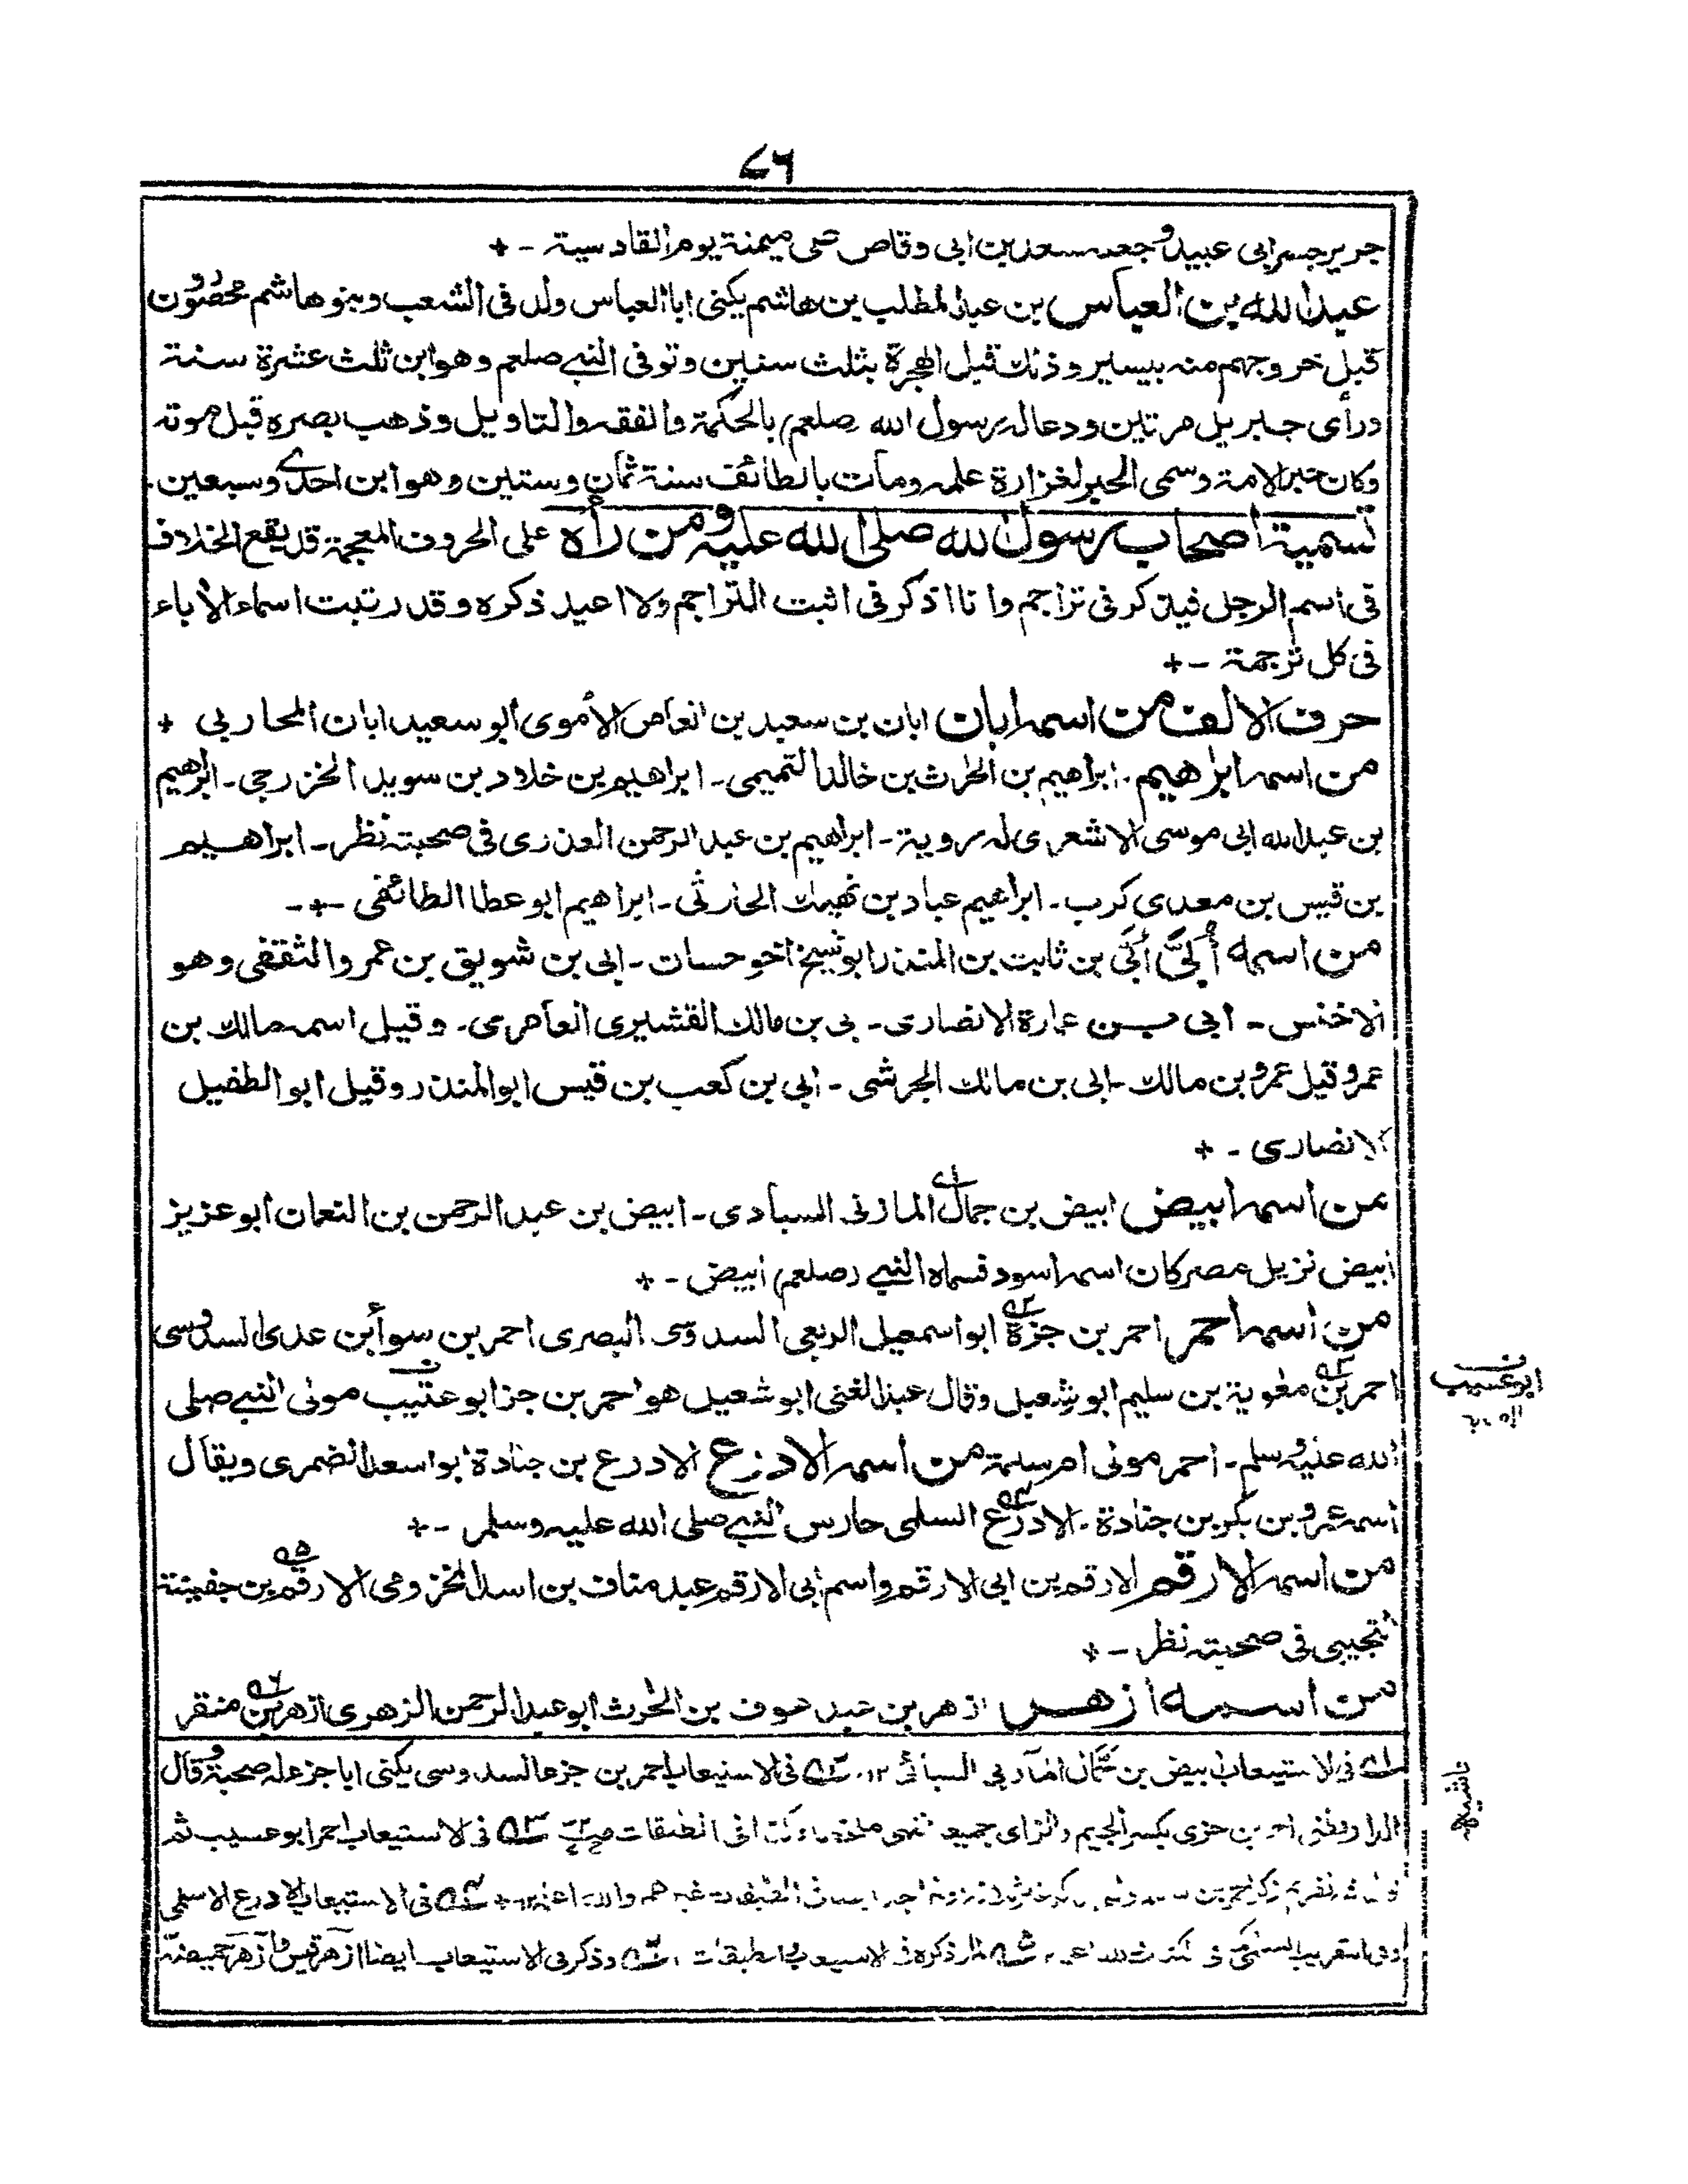 ٧٦
جرير جسر ابى عبيد وجعله سعد بن ابى وقاص على ميمنة يوم القادسية - +
عبد الله بن العباس بن عبد المطلب بن هاشم يكنى ابا العباس ولد فى الشعب وبنو هاشم محصورون
قبل خروجهم منه بيسير وذلك قبل الهجرة بثلث سنين وتوفى النبي صلعم وهو ابن ثلث عشرة سنة
ورأى جبريل مرتين ودعا له رسول الله صلعم بالحكمة والفقه والتاويل وذهب بصره قبل موته
وكان حبر الامة وسمى الحبر لغزارة علمه ومات بالطائف سنة ثمان وستين وهو ابن احدى وسبعين.
تسمية اصحاب رسول الله صلى الله عليه ومن رأه على الحروف المعجمة قد يقع الخلاف
فى اسم الرجل فيذكر فى تراجم وانا اذكر فى اثبت التراجم ولا اعيد ذكره وقد رتبت اسماء الاباء
فى كل ترجمة - +
حرف الالف من اسمه ابان ابان بن سعيد بن العاص الأموى أبو سعيد ابان المحاربى +
من اسمه ابراهيم . ابراهيم بن الحرث بن خالد التميمى - ابراهيم بن خلاد بن سويد الخزرجى - ابراهيم
بن عبد الله ابى موسى الاشعرى له روية - ابراهيم بن عبد الرحمن العذرى فى صحبته نظر - ابراهيم
بن قيس بن معدى كرب - ابراهيم عباد بن نهيك الحارثى - ابراهيم ابو عطا الطائفى - + -
من اسمه أُبَىّ أبَى بن ثابت بن المنذر ابو شيخ اخو حسان - ابى بن شويق بن عمرو الثقفى وهو
الاخنس - ابى بن عمارة الانصارى - بى بن مالك القشيرى العامرى - وقيل اسمه مالك بن
عمرو قيل عمرو بن مالك - ابى بن مالك الجرشى - ابى بن كعب بن قيس ابو المنذر وقيل ابو الطفيل
الانصارى - +
من اسمه ابيض ابيض بن جمال المازنى السبادى - ابيض بن عبد الرحمن بن النعمان ابو عزيز
ابيض نزيل مصر كان اسمه اسود فسماه النبي (صلعم) ابيض - +
من اسمه احمر احمر بن جزة ابو اسمعيل الربعى السدوسى البصرى احمر بن سوأ بن عدى السدوسى
احمر بن معوية بن سليم ابو شعيل وقال عبد الغنى ابو شعيل هو احمر بن جز ابو عتيب مولى النبي صلى
الله عليه وسلم - احمر مولى ام سلمة من اسمه الادرع الادرع بن جنادة ابو اسعد الضمرى ويقال
اسمه عمرو بن بكر بن جنادة - الادرع السلمى حارس النبي صلى الله عليه وسلم - +
من اسمه الارقم الارقم بن ابى الارقم واسم ابى الارقم عبد مناف بن اسد المخزومى الارقم بن جفينة
التجيبى فى صحبته نظر - +
من اسمه ازهر ازهر بن عبد عوف بن الحرث ابو عبد الرحمن الزهرى ازهر بن منقر
ابو عسيب
١ فى الاستيعاب ابيض بن حمال السبائى ١٢ ٢ فى الاستيعاب احمر بن جزء السدوسى يكنى ابا جزء له صحبة وقال
الدارقطنى بن جزى بكسر الجيم والزاى جميعا الطبقات ٣ فى الاستيعاب احمر ابو عسيب
٤ فى الاستيعاب الادرع الاسلمى
٥ ذكره فى الاستيعاب ٦ وذكر فى الاستيعاب ايضا ازهر بن قيس وازهر بن حميضة